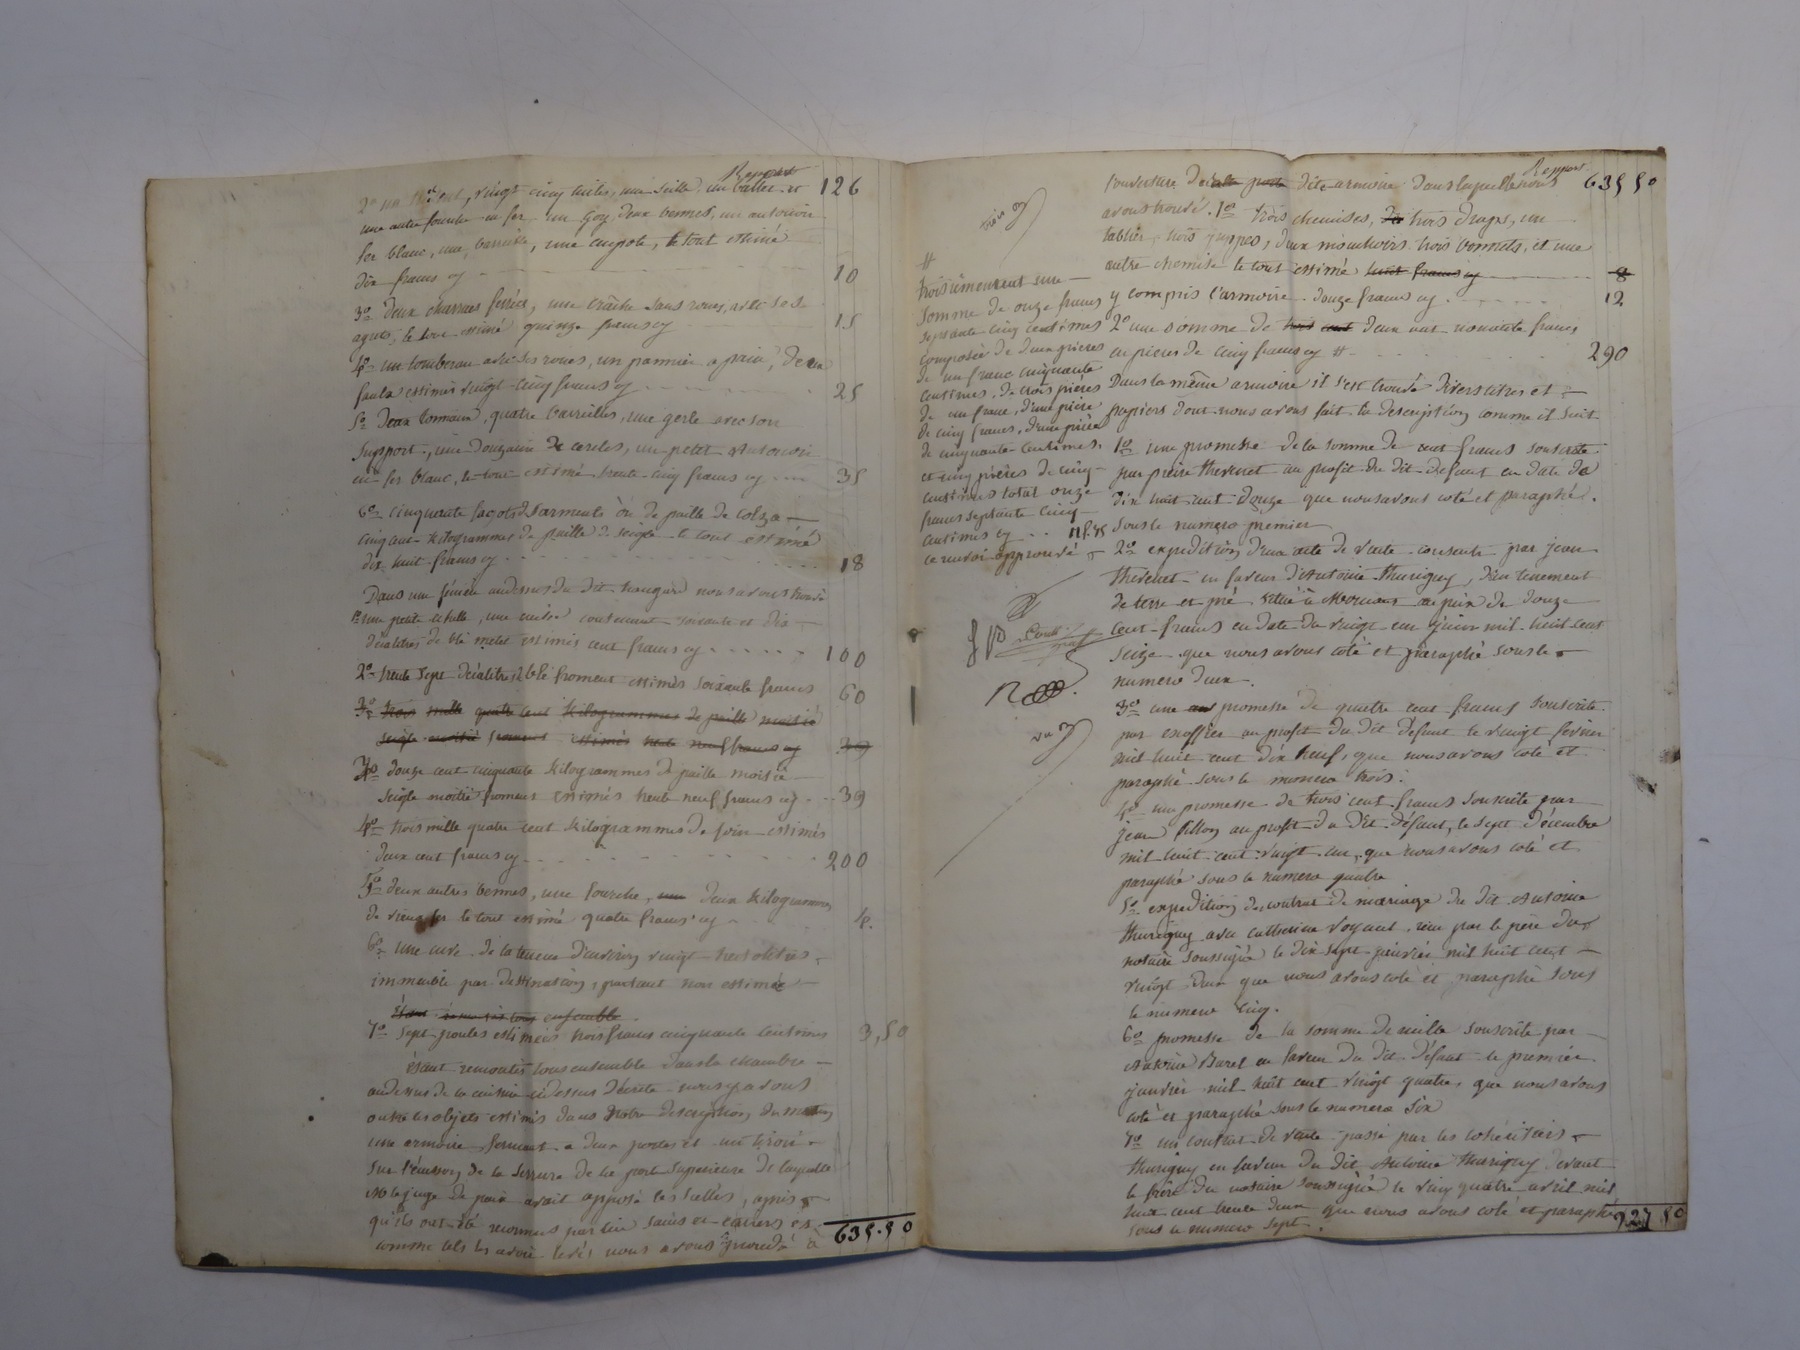 Report
2o un vingt cinq une seille, un et 126
une autre fourche en fer un Goy, deux bennes, un entonnoir
fer blanc, une barrière, une coupole, le tout estimé
dix francs cy 10
3o deux charrues ferrées, une traîne sans roues, avec ses
agrès, le tout estimé quinze francs cy 15
4o un tombereau avec ses roues, un pannier a pain, deux
estimés vingt cinq francs cy 25
5o deux tonneaux, quatre barrilles, une gerle avec son
support, une douzaine de cercles, un petit entonnoir
en fer blanc, le tout estimé trente cinq francs cy 35
6o cinquante fagots de sarments ou de paille de colza
cinq cent kilogrammes de paille de seigle le tout estimé
dix huit francs cy 18
Dans un fénier audessus du dit hangard nous avons trouvé
1o une petite échelle, une contenant soixante et dix
décalitres de blé estimés cent francs cy 100
2o trente sept décalitres blé froment estimés soixante francs 60
3o trois mille quatre cent kilogrammes de paille moitié
seigle moitié froment estimés trente neuf francs cy 39
3o douze cent cinquante kilogrammes de paille moitié
seigle moitié froment estimés trente neuf francs cy 39
4o trois mille quatre cent kilogrammes de foin estimés
deux cent francs cy 200
5o deux autres bennes, une fourche, une deux kilogrammes
de vieux fer le tout estimé quatre francs cy 4
6o une cuve de la teneur d'environ vingt hectolitres
immeuble par destination, partant non estimée
étant remontés tous ensemble
7o sept poules estimées trois francs cinquante centimes 3,50
étant remontés tous ensemble dans la chambre
audessus de la cuisine cidessus décrite nous y avons
outre les objets estimés dans notre description du matin
une armoire fermant a deux portes et un tiroir
sur l'écusson de la serrure de la porte supérieure de laquelle
Mr le juge de paix avait apposé les scellés, après
qu'ils ont été reconnus par lui sains et entiers et
comme tels les avoir levés nous avons procédé à 635.50
Report
l'ouverture de la dite armoire dans laquelle nous 635 50
avons trouvé. 1o trois chemises, trois draps, un
tablier, trois juppes, deux mouchoirs trois bonnets, et une
autre chemise le tout estimé huit francs cy 8
y compris l'armoire douze francs cy 12
2o une somme de trois cent deux cent nonante francs
en pièces de cinq francs cy # 290
Dans la même armoire il s'est trouvé divers titres et
papiers dont nous avons fait la description comme il suit
1o une promesse de la somme de cent francs souscrite
par pierre thevenet au profit du dit défunt en date de
dix huit cent douze que nous avons coté et paraphé
sous le numero premier
2o expedition d'un acte de vente consenti par jean
thevenet en faveur d'Antoine thurigny, d'un tenement
de terre et pré situé à au prix de douze
cent francs en date du vingt un juin mil huit cent
seize que nous avons coté et paraphé sous le
numero deux.
3o une promesse de quatre cent francs souscrite
par au profit du dit défunt le vingt fevrier
mil huit cent dix neuf, que nous avons coté et
paraphé sous le numero trois.
4o une promesse de trois cent francs souscrite par
jean au profit du dit défunt, le sept décembre
mil huit cent vingt un, que nous avons coté et
paraphé sous le numero quatre
5o expedition du contrat de mariage du dit Antoine
thurigny avec catherine Voyant, reçu par le père du
notaire soussigné le dix sept janvier mil huit cent
vingt deux que nous avons coté et paraphé sous
le numero cinq.
6o promesse de la somme de mille souscrite par
Antoine Burel en faveur du dit défunt le premier
janvier mil huit cent vingt quatre, que nous avons
coté et paraphé sous le numero six
7o un contrat de vente passé par les cohéritiers
thurigny en faveur du dit Antoine thurigny devant
le frère du notaire soussigné le vingt quatre avril mil
huit cent trente deux que nous avons coté et paraphé
sous le numero sept. 927 50
#
trois cimement une
somme de onze francs
septante cinq centimes
composée de deux pièces
de un franc cinquante
centimes, de trois pièces
de un franc, d'une pièce
de cinq francs, d'une pièce
de cinquante centimes,
et cinq pièces de cinq
centimes total onze
francs septante cinq
centimes cy 11f.75
ce renvoi approuvé